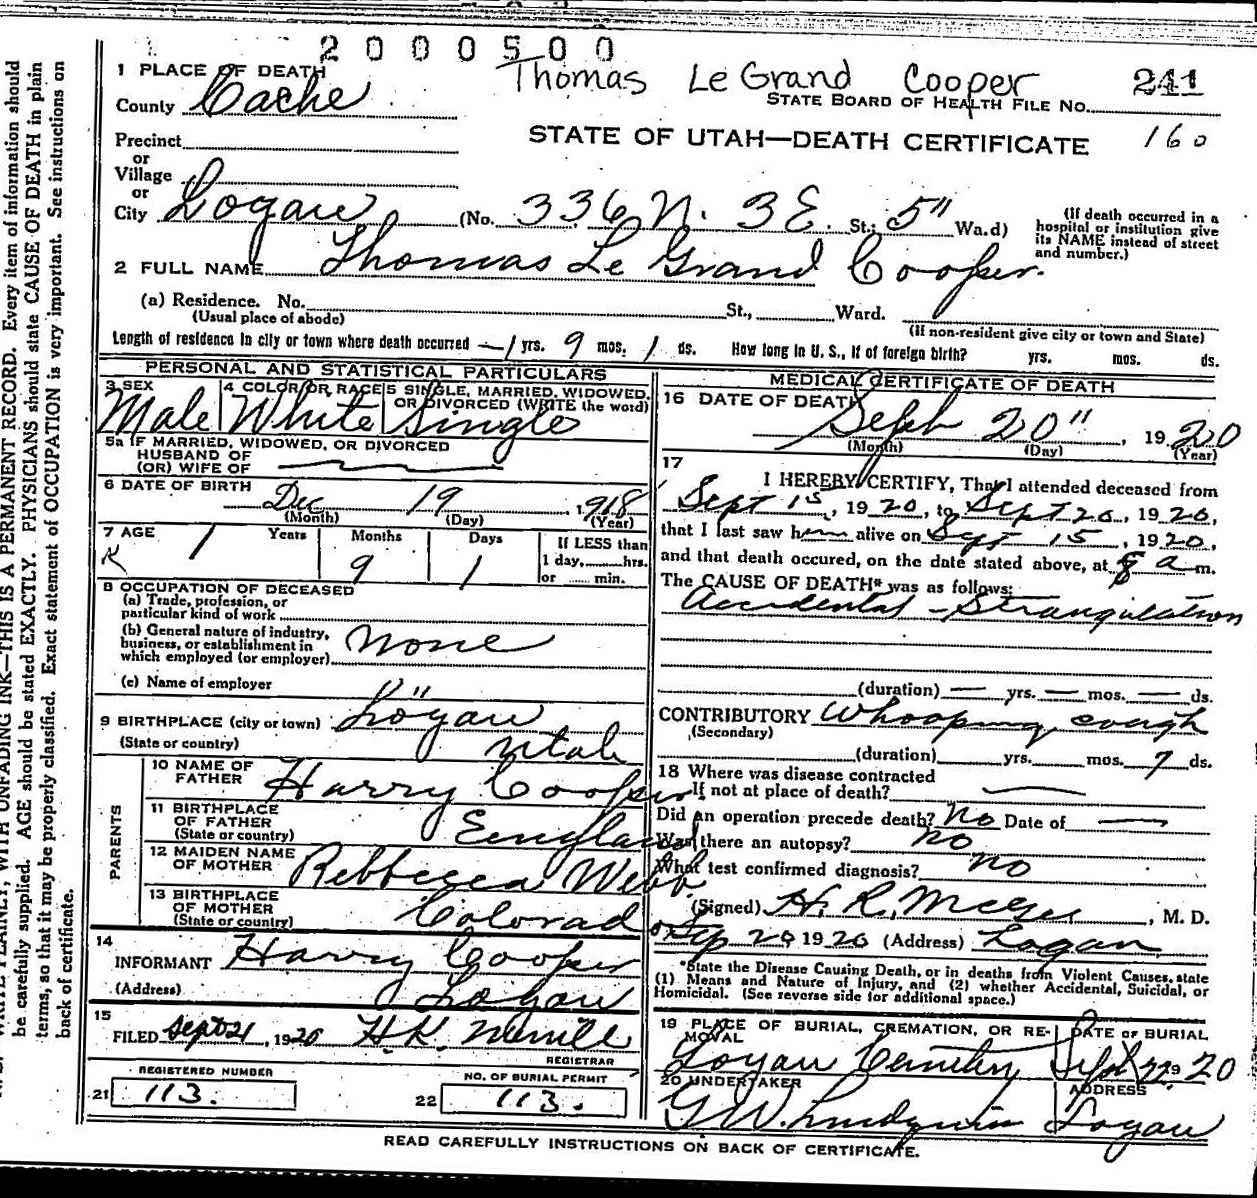 2 0 0 0 5 0 0
1 PLACE OF DEATH Thomas Le Grand Cooper 241
County Cache STATE BOARD OF HEALTH FILE No.
Precinct STATE OF UTAH—DEATH CERTIFICATE 160
or
Village
or
City Logan (No. 336 N. 3 E. St.; 5" Wa.d) (If death occurred in a hospital or institution give its NAME instead of street and number.)
2 FULL NAME Thomas Le Grand Cooper.
(a) Residence. No. St., Ward.
(Usual place of abode) (If non-resident give city or town and State)
Length of residence in city or town where death occurred — 1 yrs. 9 mos. 1 ds. How long in U. S., if of foreign birth? yrs. mos. ds.
PERSONAL AND STATISTICAL PARTICULARS
3 SEX 4 COLOR OR RACE 5 SINGLE, MARRIED, WIDOWED, OR DIVORCED (WRITE the word)
Male White Single
5a IF MARRIED, WIDOWED, OR DIVORCED
HUSBAND OF
(OR) WIFE OF
6 DATE OF BIRTH Dec 19, 1918
(Month) (Day) (Year)
7 AGE 1 Years 9 Months 1 Days
If LESS than
1 day, hrs.
or min.
8 OCCUPATION OF DECEASED
(a) Trade, profession, or
particular kind of work
(b) General nature of industry,
business, or establishment in
which employed (or employer) None
(c) Name of employer "
9 BIRTHPLACE (city or town) Logan
(State or country) Utah
PARENTS
10 NAME OF FATHER Harry Cooper
11 BIRTHPLACE OF FATHER
(State or country) England
12 MAIDEN NAME OF MOTHER Rebbecca Webb
13 BIRTHPLACE OF MOTHER
(State or country) Colorado
14
INFORMANT Harry Cooper
(Address) Logan
15
FILED Sept 21, 1920 H.K. Merrill
REGISTRAR
REGISTERED NUMBER NO. OF BURIAL PERMIT
21 113. 22 113.
MEDICAL CERTIFICATE OF DEATH
16 DATE OF DEATH
Sept 20", 1920
(Month) (Day) (Year)
17
I HEREBY CERTIFY, That I attended deceased from
Sept 15, 1920, to Sept 20, 1920,
that I last saw him alive on Sept 15, 1920,
and that death occured, on the date stated above, at 8 a m.
The CAUSE OF DEATH* was as follows:
Accidental - Strangulation
(duration) — yrs. — mos. — ds.
CONTRIBUTORY Whooping cough
(Secondary)
(duration) yrs. mos. 7 ds.
18 Where was disease contracted
If not at place of death? —
Did an operation precede death? No Date of —
Was there an autopsy? no
What test confirmed diagnosis? no
(Signed) H. R. , M. D.
Sep 20 1920 (Address) Logan
*State the Disease Causing Death, or in deaths from Violent Causes, state
(1) Means and Nature of Injury, and (2) whether Accidental, Suicidal, or
Homicidal. (See reverse side for additional space.)
19 PLACE OF BURIAL, CREMATION, OR RE- DATE OF BURIAL
MOVAL
Logan Cemetery Sept 22 1920
20 UNDERTAKER ADDRESS
G W. Logan
READ CAREFULLY INSTRUCTIONS ON BACK OF CERTIFICATE.
WITH UNFADING INK—THIS IS A PERMANENT RECORD. Every item of information should
be carefully supplied. AGE should be stated EXACTLY. PHYSICIANS should state CAUSE OF DEATH in plain
terms, so that it may be properly classified. Exact statement of OCCUPATION is very important. See instructions on
back of certificate.